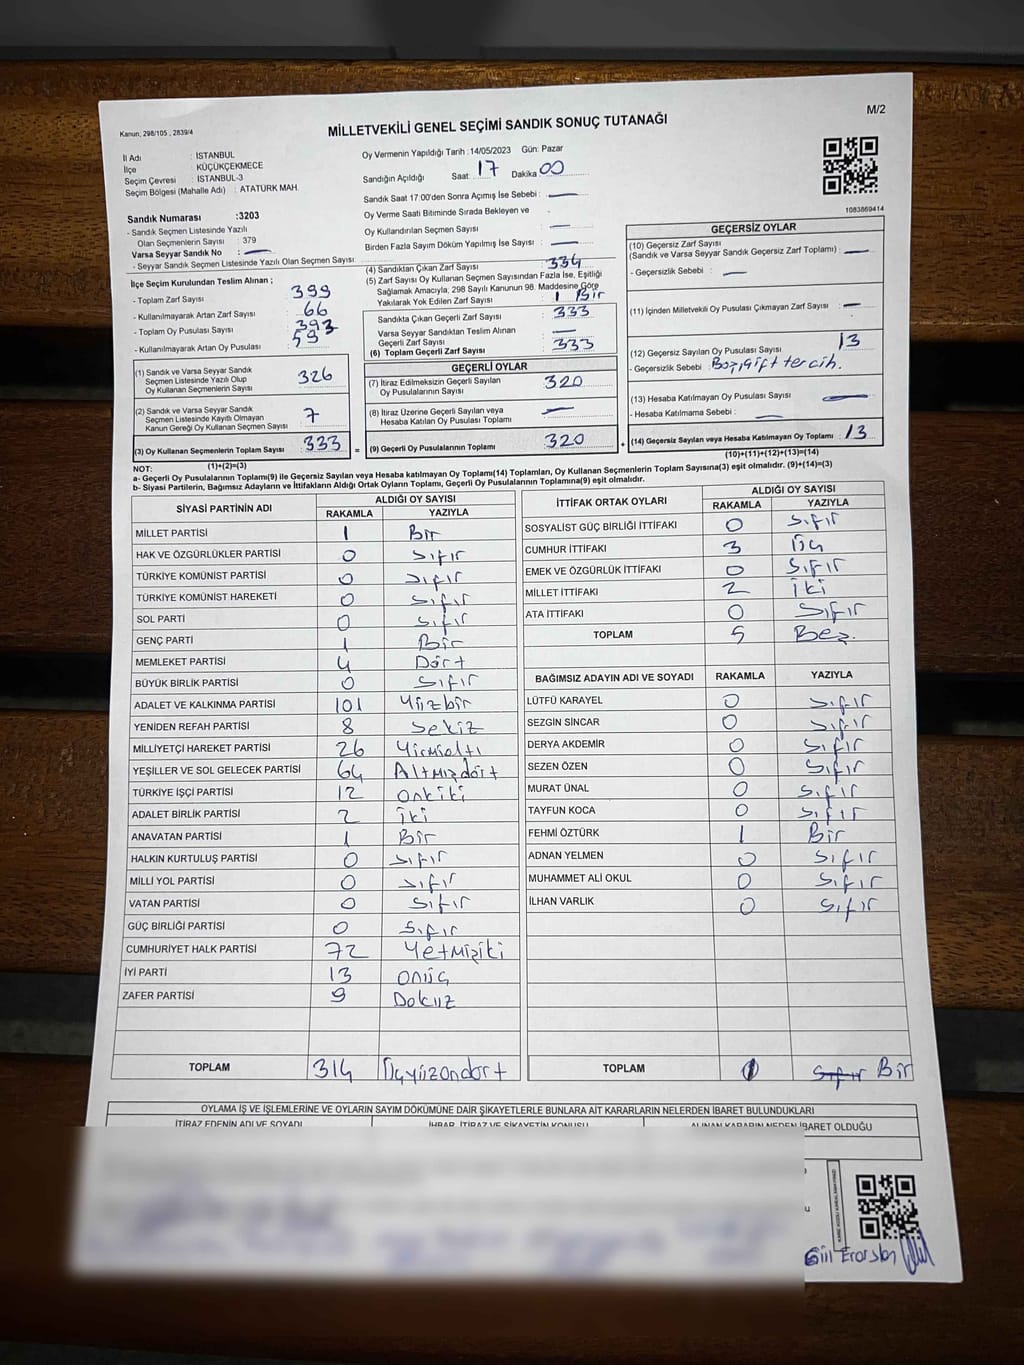 M/2
Kanun; 298/105 , 2839/4
MİLLETVEKİLİ GENEL SEÇİMİ SANDIK SONUÇ TUTANAĞI
İl Adı : İSTANBUL
İlçe : KÜÇÜKÇEKMECE
Seçim Çevresi : İSTANBUL-3
Seçim Bölgesi (Mahalle Adı) : ATATÜRK MAH.
Sandık Numarası :3203
- Sandık Seçmen Listesinde Yazılı
Olan Seçmenlerin Sayısı : 379
Varsa Seyyar Sandık No : —
- Seyyar Sandık Seçmen Listesinde Yazılı Olan Seçmen Sayısı
Oy Vermenin Yapıldığı Tarih :14/05/2023 Gün: Pazar
Sandığın Açıldığı Saat: 17 Dakika 00
Sandık Saat 17:00'den Sonra Açımış İse Sebebi : —
Oy Verme Saati Bitiminde Sırada Bekleyen ve
Oy Kullandırılan Seçmen Sayısı —
Birden Fazla Sayım Döküm Yapılmış İse Sayısı : —
1083869414
İlçe Seçim Kurulundan Teslim Alınan ;
- Toplam Zarf Sayısı : 399
- Kullanılmayarak Artan Zarf Sayısı : 66
- Toplam Oy Pusulası Sayısı : 393
- Kullanılmayarak Artan Oy Pusulası : 59
(1) Sandık ve Varsa Seyyar Sandık
Seçmen Listesinde Yazılı Olup
Oy Kullanan Seçmenlerin Sayısı : 326
(2) Sandık ve Varsa Seyyar Sandık
Seçmen Listesinde Kayıtlı Olmayan
Kanun Gereği Oy Kullanan Seçmen Sayısı : 7
(3) Oy Kullanan Seçmenlerin Toplam Sayısı : 333
(1)+(2)=(3)
(4) Sandıktan Çıkan Zarf Sayısı : 334
(5) Zarf Sayısı Oy Kullanan Seçmen Sayısından Fazla İse, Eşitliği
Sağlamak Amacıyla, 298 Sayılı Kanunun 98. Maddesine Göre
Yakılarak Yok Edilen Zarf Sayısı : 1 Bir
Sandıkta Çıkan Geçerli Zarf Sayısı : 333
Varsa Seyyar Sandıktan Teslim Alınan
Geçerli Zarf Sayısı : —
(6) Toplam Geçerli Zarf Sayısı : 333
GEÇERLİ OYLAR
(7) İtiraz Edilmeksizin Geçerli Sayılan
Oy Pusulalarının Sayısı : 320
(8) İtiraz Üzerine Geçerli Sayılan veya
Hesaba Katılan Oy Pusulası Toplamı : —
= (9) Geçerli Oy Pusulalarının Toplamı : 320 +
GEÇERSİZ OYLAR
(10) Geçersiz Zarf Sayısı
(Sandık ve Varsa Seyyar Sandık Geçersiz Zarf Toplamı) : —
- Geçersizlik Sebebi : —
(11) İçinden Milletvekili Oy Pusulası Çıkmayan Zarf Sayısı : —
(12) Geçersiz Sayılan Oy Pusulası Sayısı : 13
- Geçersizlik Sebebi : Boş, çift tercih.
(13) Hesaba Katılmayan Oy Pusulası Sayısı : —
- Hesaba Katılmama Sebebi : —
(14) Geçersiz Sayılan veya Hesaba Katılmayan Oy Toplamı : 13
(10)+(11)+(12)+(13)=(14)
NOT:
a- Geçerli Oy Pusulalarının Toplamı(9) ile Geçersiz Sayılan veya Hesaba katılmayan Oy Toplamı(14) Toplamları, Oy Kullanan Seçmenlerin Toplam Sayısına(3) eşit olmalıdır. (9)+(14)=(3)
b- Siyasi Partilerin, Bağımsız Adayların ve İttifakların Aldığı Ortak Oyların Toplamı, Geçerli Oy Pusulalarının Toplamına(9) eşit olmalıdır.
SİYASİ PARTİNİN ADI ALDIĞI OY SAYISI
RAKAMLA YAZIYLA
MİLLET PARTİSİ 1 Bir
HAK VE ÖZGÜRLÜKLER PARTİSİ 0 Sıfır
TÜRKİYE KOMÜNİST PARTİSİ 0 Sıfır
TÜRKİYE KOMÜNİST HAREKETİ 0 Sıfır
SOL PARTİ 0 Sıfır
GENÇ PARTİ 1 Bir
MEMLEKET PARTİSİ 4 Dört
BÜYÜK BİRLİK PARTİSİ 0 Sıfır
ADALET VE KALKINMA PARTİSİ 101 Yüzbir
YENİDEN REFAH PARTİSİ 8 Sekiz
MİLLİYETÇİ HAREKET PARTİSİ 26 Yirmialtı
YEŞİLLER VE SOL GELECEK PARTİSİ 64 Altmışdört
TÜRKİYE İŞÇİ PARTİSİ 12 Oniki
ADALET BİRLİK PARTİSİ 2 iki
ANAVATAN PARTİSİ 1 Bir
HALKIN KURTULUŞ PARTİSİ 0 Sıfır
MİLLİ YOL PARTİSİ 0 Sıfır
VATAN PARTİSİ 0 Sıfır
GÜÇ BİRLİĞİ PARTİSİ 0 Sıfır
CUMHURİYET HALK PARTİSİ 72 Yetmişiki
İYİ PARTİ 13 Onüç
ZAFER PARTİSİ 9 Dokuz
TOPLAM 314 Üçyüzondört
İTTİFAK ORTAK OYLARI ALDIĞI OY SAYISI
RAKAMLA YAZIYLA
SOSYALİST GÜÇ BİRLİĞİ İTTİFAKI 0 Sıfır
CUMHUR İTTİFAKI 3 Üç
EMEK VE ÖZGÜRLÜK İTTİFAKI 0 Sıfır
MİLLET İTTİFAKI 2 iki
ATA İTTİFAKI 0 Sıfır
TOPLAM 5 Beş.
BAĞIMSIZ ADAYIN ADI VE SOYADI RAKAMLA YAZIYLA
LÜTFÜ KARAYEL 0 Sıfır
SEZGİN SİNCAR 0 Sıfır
DERYA AKDEMİR 0 Sıfır
SEZEN ÖZEN 0 Sıfır
MURAT ÜNAL 0 Sıfır
TAYFUN KOCA 0 Sıfır
FEHMİ ÖZTÜRK 1 Bir
ADNAN YELMEN 0 Sıfır
MUHAMMET ALİ OKUL 0 Sıfır
İLHAN VARLIK 0 Sıfır
TOPLAM 1 Sıfır Bir
OYLAMA İŞ VE İŞLEMLERİNE VE OYLARIN SAYIM DÖKÜMÜNE DAİR ŞİKAYETLERLE BUNLARA AİT KARARLARIN NELERDEN İBARET BULUNDUKLARI
İTİRAZ EDENİN ADI VE SOYADI İHBAR, İTİRAZ VE ŞİKAYETİN KONUSU ALINAN KARARIN NEDEN İBARET OLDUĞU